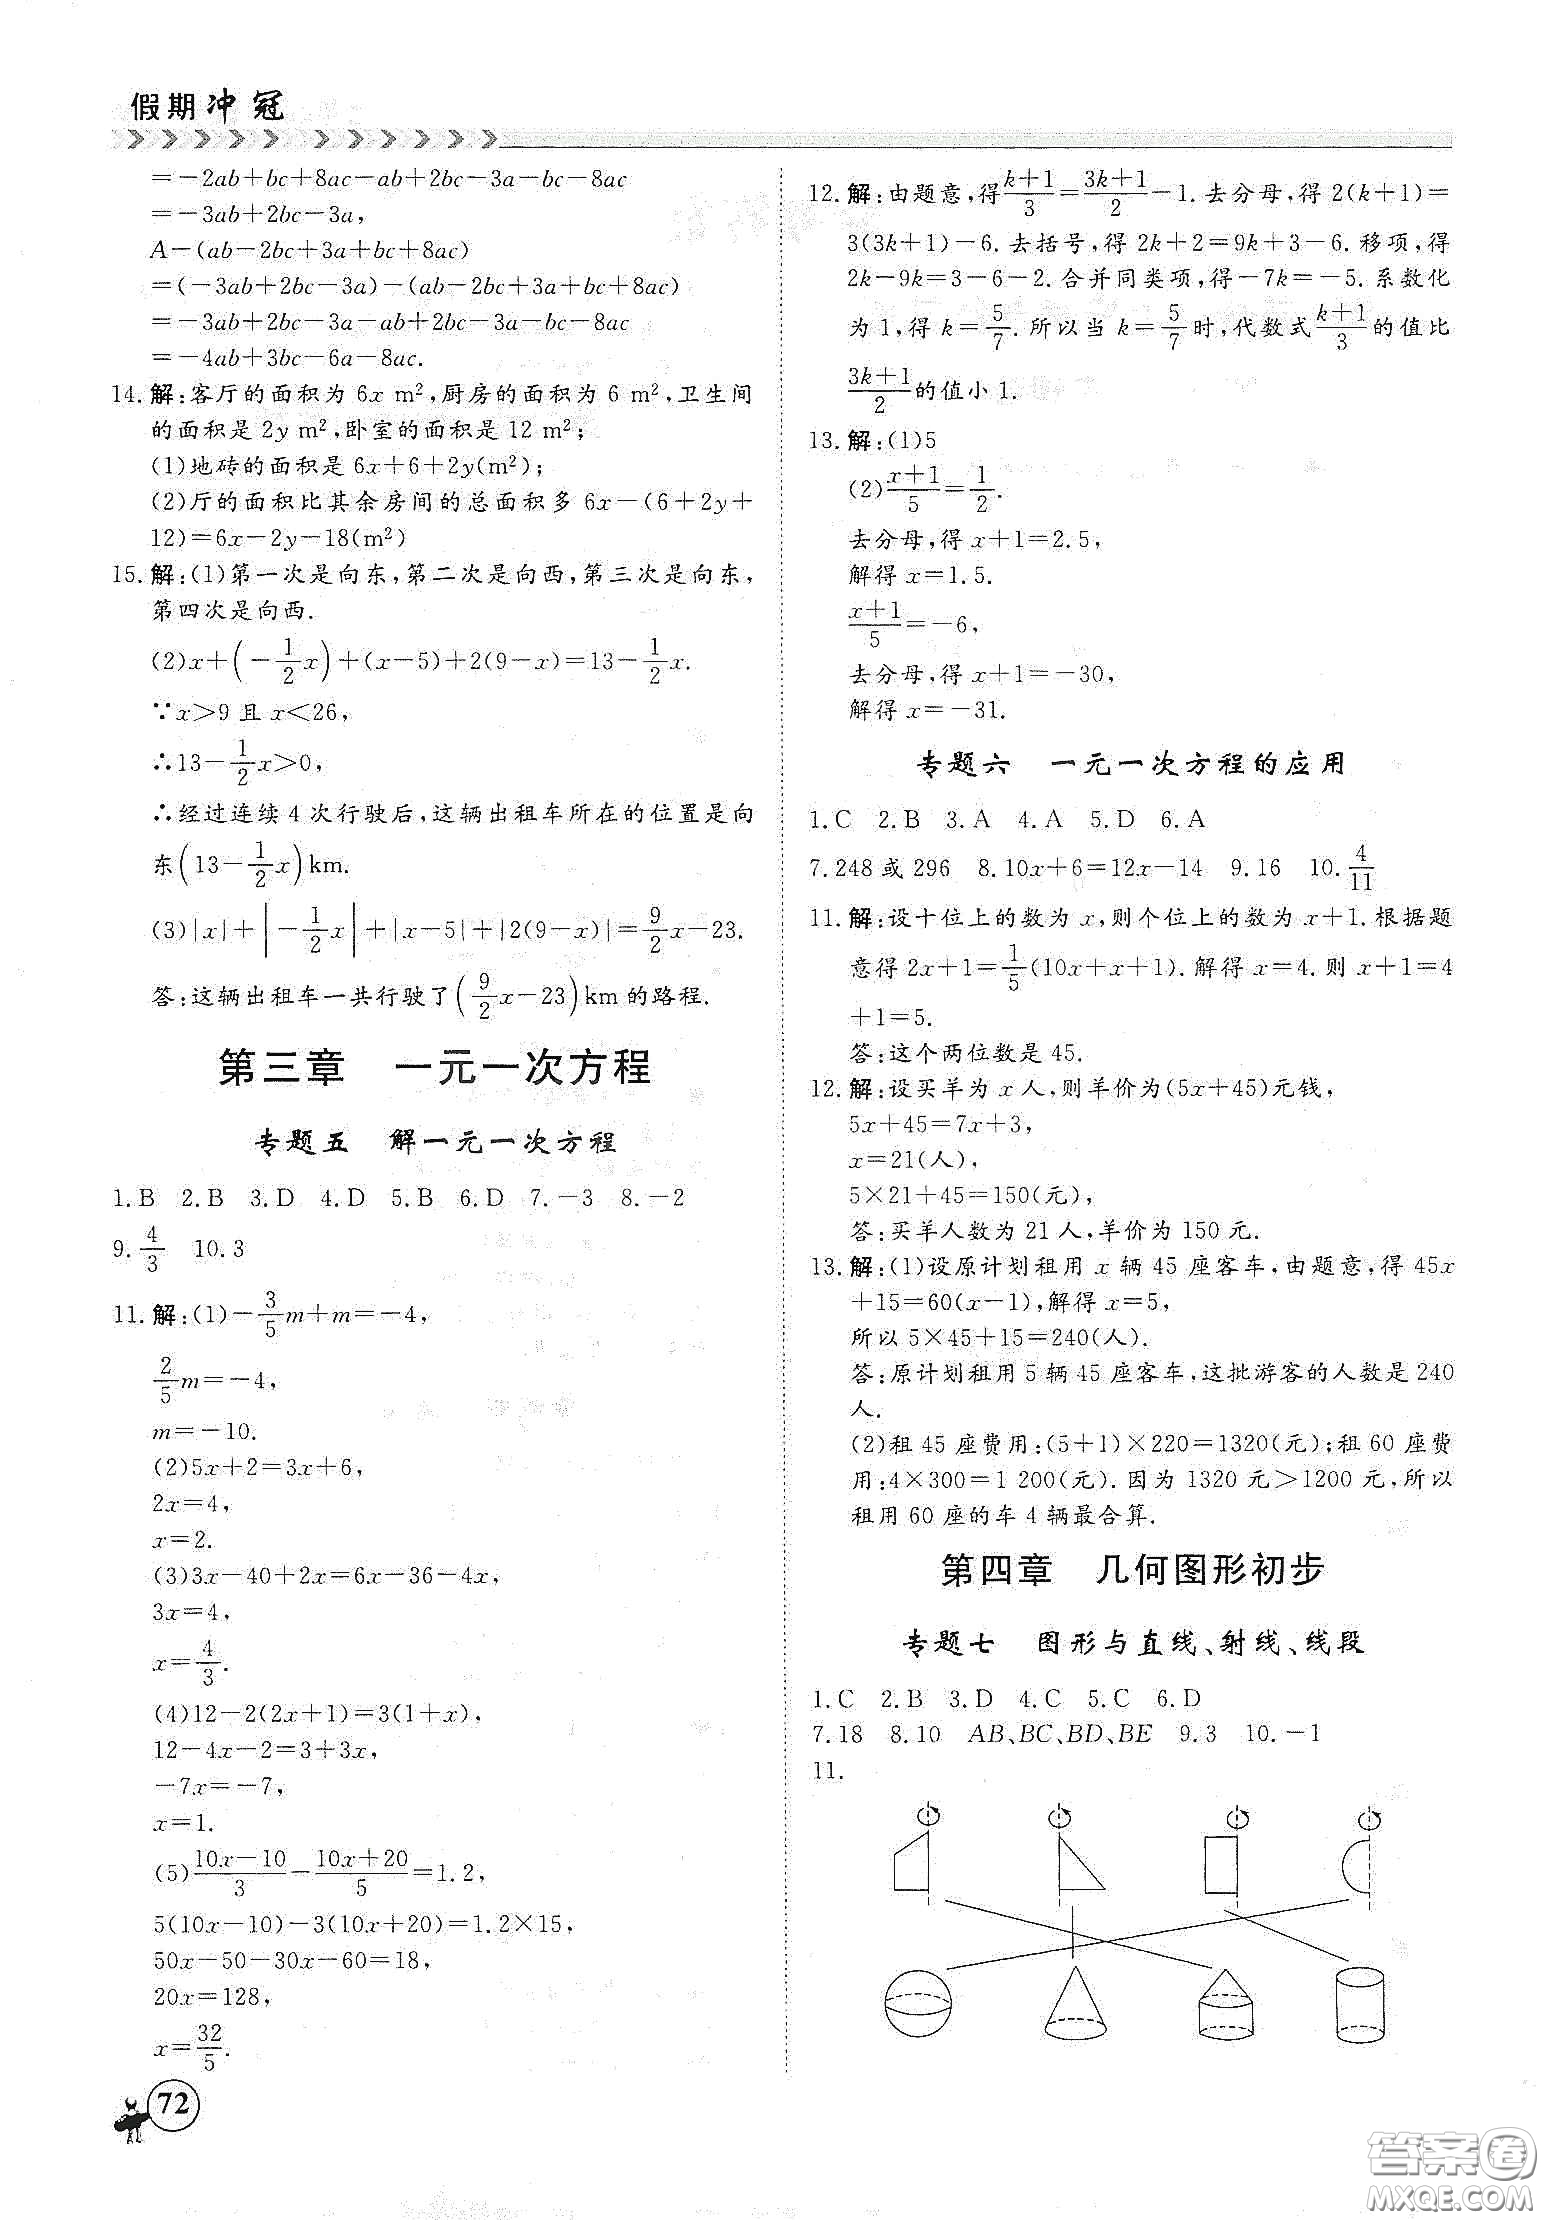 假期冲冠
=-2ab+bc+8ac-ab+2bc-3a-bc-8ac
=-3ab+2bc-3a,
A-(ab-2bc+3a+bc+8ac)
=(-3ab+2bc-3a)-(ab-2bc+3a+bc+8ac)
=-3ab+2bc-3a-ab+2bc-3a-bc-8ac
=-4ab+3bc-6a-8ac.
14.解:客厅的面积为 6x m²,厨房的面积为 6 m²,卫生间
的面积是 2y m²,卧室的面积是 12 m²;
(1)地砖的面积是 6x+6+2y(m²);
(2)厅的面积比其余房间的总面积多 6x-(6+2y+
12)=6x-2y-18(m²)
15.解:(1)第一次是向东,第二次是向西,第三次是向东,
第四次是向西.
(2)x+(-1/2x)+(x-5)+2(9-x)=13-1/2x.
∵x>9 且 x<26,
∴13-1/2x>0,
∴经过连续 4 次行驶后,这辆出租车所在的位置是向
东(13-1/2x)km.
(3)|x|+|-1/2x|+|x-5|+|2(9-x)|=9/2x-23.
答:这辆出租车一共行驶了(9/2x-23)km 的路程.
第三章 一元一次方程
专题五 解一元一次方程
1.B 2.B 3.D 4.D 5.B 6.D 7.-3 8.-2
9.4/3 10.3
11.解:(1)-3/5m+m=-4,
2/5m=-4,
m=-10.
(2)5x+2=3x+6,
2x=4,
x=2.
(3)3x-40+2x=6x-36-4x,
3x=4,
x=4/3.
(4)12-2(2x+1)=3(1+x),
12-4x-2=3+3x,
-7x=-7,
x=1.
(5)(10x-10)/3-(10x+20)/5=1.2,
5(10x-10)-3(10x+20)=1.2×15,
50x-50-30x-60=18,
20x=128,
x=32/5.
72
12.解:由题意,得(k+1)/3=(3k+1)/2-1.去分母,得 2(k+1)=
3(3k+1)-6.去括号,得 2k+2=9k+3-6.移项,得
2k-9k=3-6-2.合并同类项,得-7k=-5.系数化
为 1,得 k=5/7.所以当 k=5/7时,代数式(k+1)/3的值比
(3k+1)/2的值小 1.
13.解:(1)5
(2)(x+1)/5=1/2.
去分母,得 x+1=2.5,
解得 x=1.5.
(x+1)/5=-6,
去分母,得 x+1=-30,
解得 x=-31.
专题六 一元一次方程的应用
1.C 2.B 3.A 4.A 5.D 6.A
7.248 或 296 8.10x+6=12x-14 9.16 10.4/11
11.解:设十位上的数为 x,则个位上的数为 x+1.根据题
意得 2x+1=1/5(10x+x+1).解得 x=4.则 x+1=4
+1=5.
答:这个两位数是 45.
12.解:设买羊为 x 人,则羊价为(5x+45)元钱,
5x+45=7x+3,
x=21(人),
5×21+45=150(元),
答:买羊人数为 21 人,羊价为 150 元.
13.解:(1)设原计划租用 x 辆 45 座客车,由题意,得 45x
+15=60(x-1),解得 x=5,
所以 5×45+15=240(人).
答:原计划租用 5 辆 45 座客车,这批游客的人数是 240
人.
(2)租 45 座费用:(5+1)×220=1320(元);租 60 座费
用:4×300=1 200(元).因为 1320 元>1200 元,所以
租用 60 座的车 4 辆最合算.
第四章 几何图形初步
专题七 图形与直线、射线、线段
1.C 2.B 3.D 4.C 5.C 6.D
7.18 8.10 AB、BC、BD、BE 9.3 10.-1
11.
答案卷
MXQE.COM